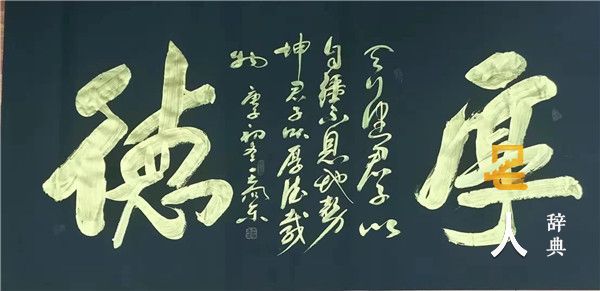 厚
天行健君子以
自彊不息地势
坤君子以厚德载
物 庚子
德
名人辞典